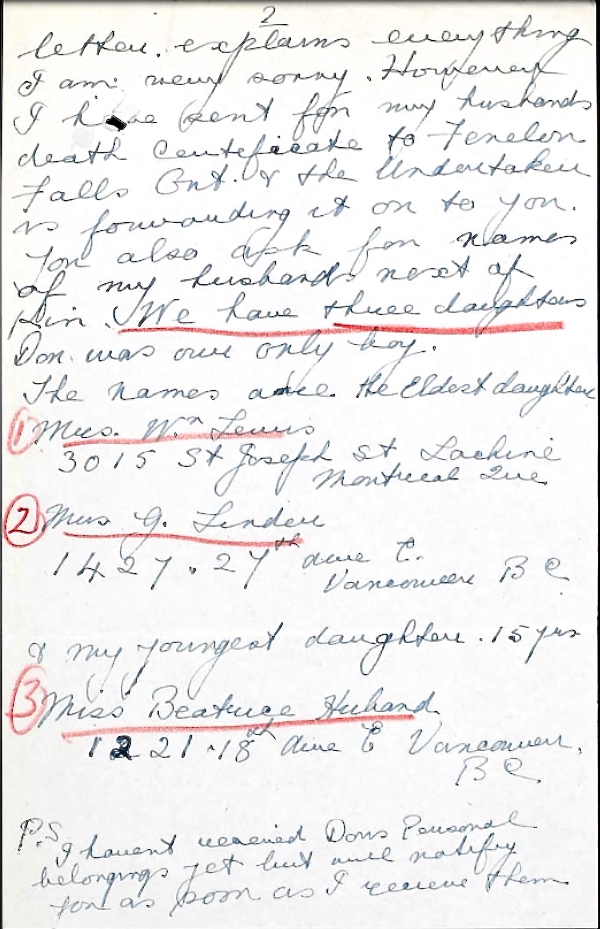 2
letter. explains everything
I am very sorry. However
I have sent for my husbands
death certificate to Fenelon
Falls Ont. & the Undertaker
is forwarding it on to you.
You also ask for names
of my husbands next of
kin. We have three daughters
Don. was our only boy.
The names are the Eldest daughter
1 Mrs. Wm Lewis
3015 St Joseph St Lachine
Montreal Que
2 Mrs G. Linder
1427. 27th Ave E.
Vancouver B C
& my youngest daughter. 15 yrs
3 Miss Beatrice Huband.
1221. 18th Ave E Vancouver.
B C.
P.S
I havent received Dons Personal
belongings yet but will notify
you as soon as I receive them